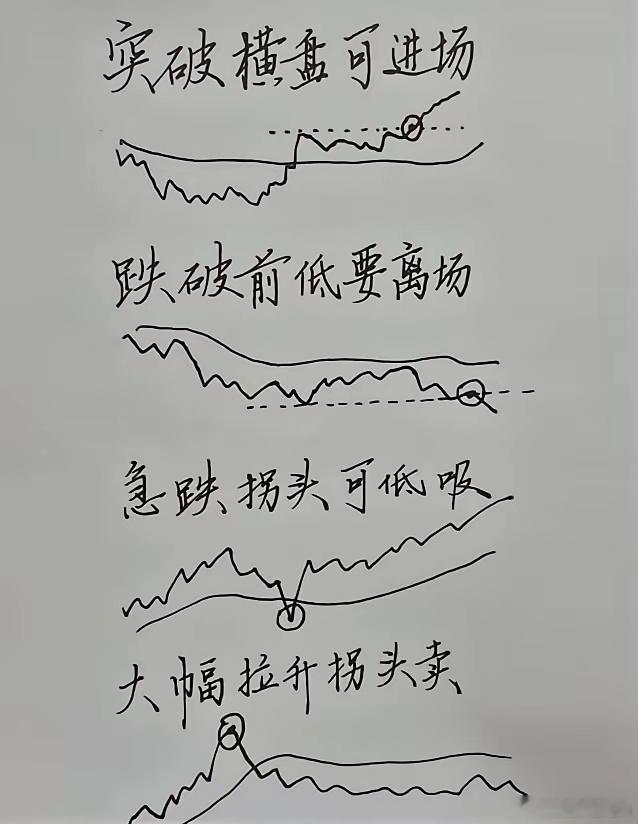 突破横盘可进场
跌破前低要离场
急跌拐头可低吸
大幅拉升拐头卖